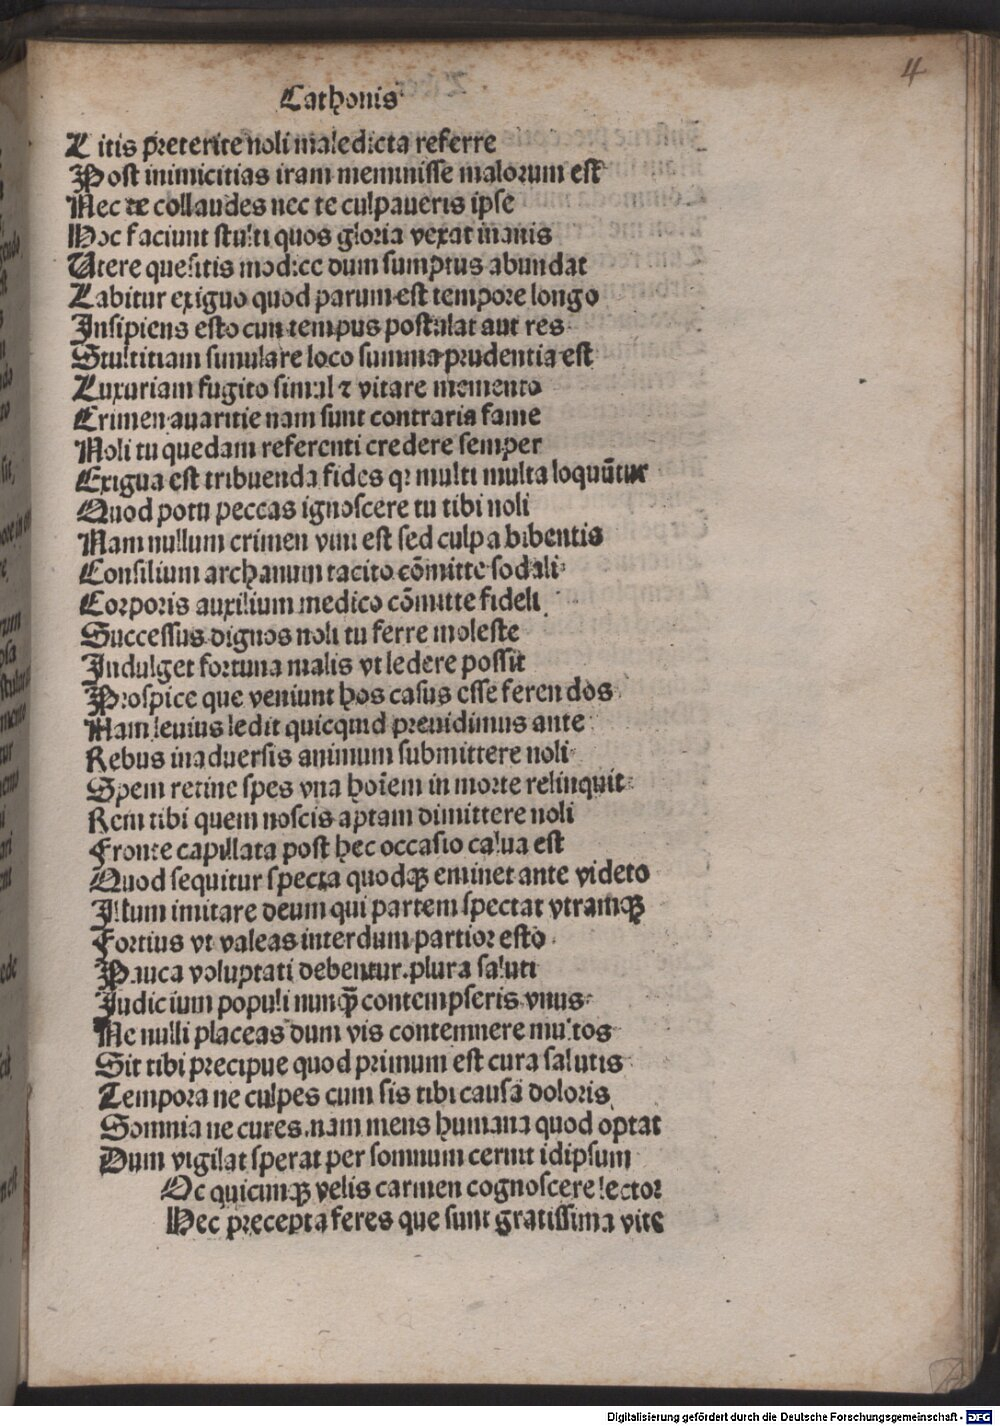 4
Cathonis
Litis preterite noli maledicta referre
Post inimicitias iram meminisse malorum est
Nec te collaudes nec te culpaueris ipse
Hoc faciunt stulti quos gloria vexat inanis
Utere quesitis modice dum sumptus abundat
Labitur exiguo quod parum est tempore longo
Insipiens esto cum tempus postulat aut res
Stultitiam simulare loco summa prudentia est
Luxuriam fugito simul ⁊ vitare memento
Crimen auaritie nam sunt contraria fame
Noli tu quedam referenti credere semper
Exigua est tribuenda fides qꝛ multi multa loquūtur
Quod potu peccas ignoscere tu tibi noli
Nam nullum crimen vini est sed culpa bibentis
Consilium archanum tacito cōmitte sodali
Corporis auxilium medico cōmitte fideli
Successus dignos noli tu ferre moleste
Indulget fortuna malis vt ledere possit
Prospice que veniunt hos casus esse ferendos
Nam leuius ledit quicquid preuidimus ante
Rebus in aduersis animum submittere noli
Spem retine spes vna hoīem in morte relinquit
Rem tibi quem noscis aptam dimittere noli
Fronte capillata post hec occasio calua est
Quod sequitur specta quodqꝫ eminet ante videto
Illum imitare deum qui partem spectat vtramqꝫ
Fortius vt valeas interdum partior esto
Pauca voluptati debentur. plura saluti
Iudicium populi nunqꝫ̄ contempseris vnus
Ne nulli placeas dum vis contemnere multos
Sit tibi precipue quod primum est cura salutis
Tempora ne culpes cum sis tibi causa doloris
Somnia ne cures. nam mens humana quod optat
Dum vigilat sperat per somnum cernit idipsum
Oc quicunqꝫ velis carmen cognoscere lector
Hec precepta feres que sunt gratissima vite
Digitalisierung gefördert durch die Deutsche Forschungsgemeinschaft - DFG